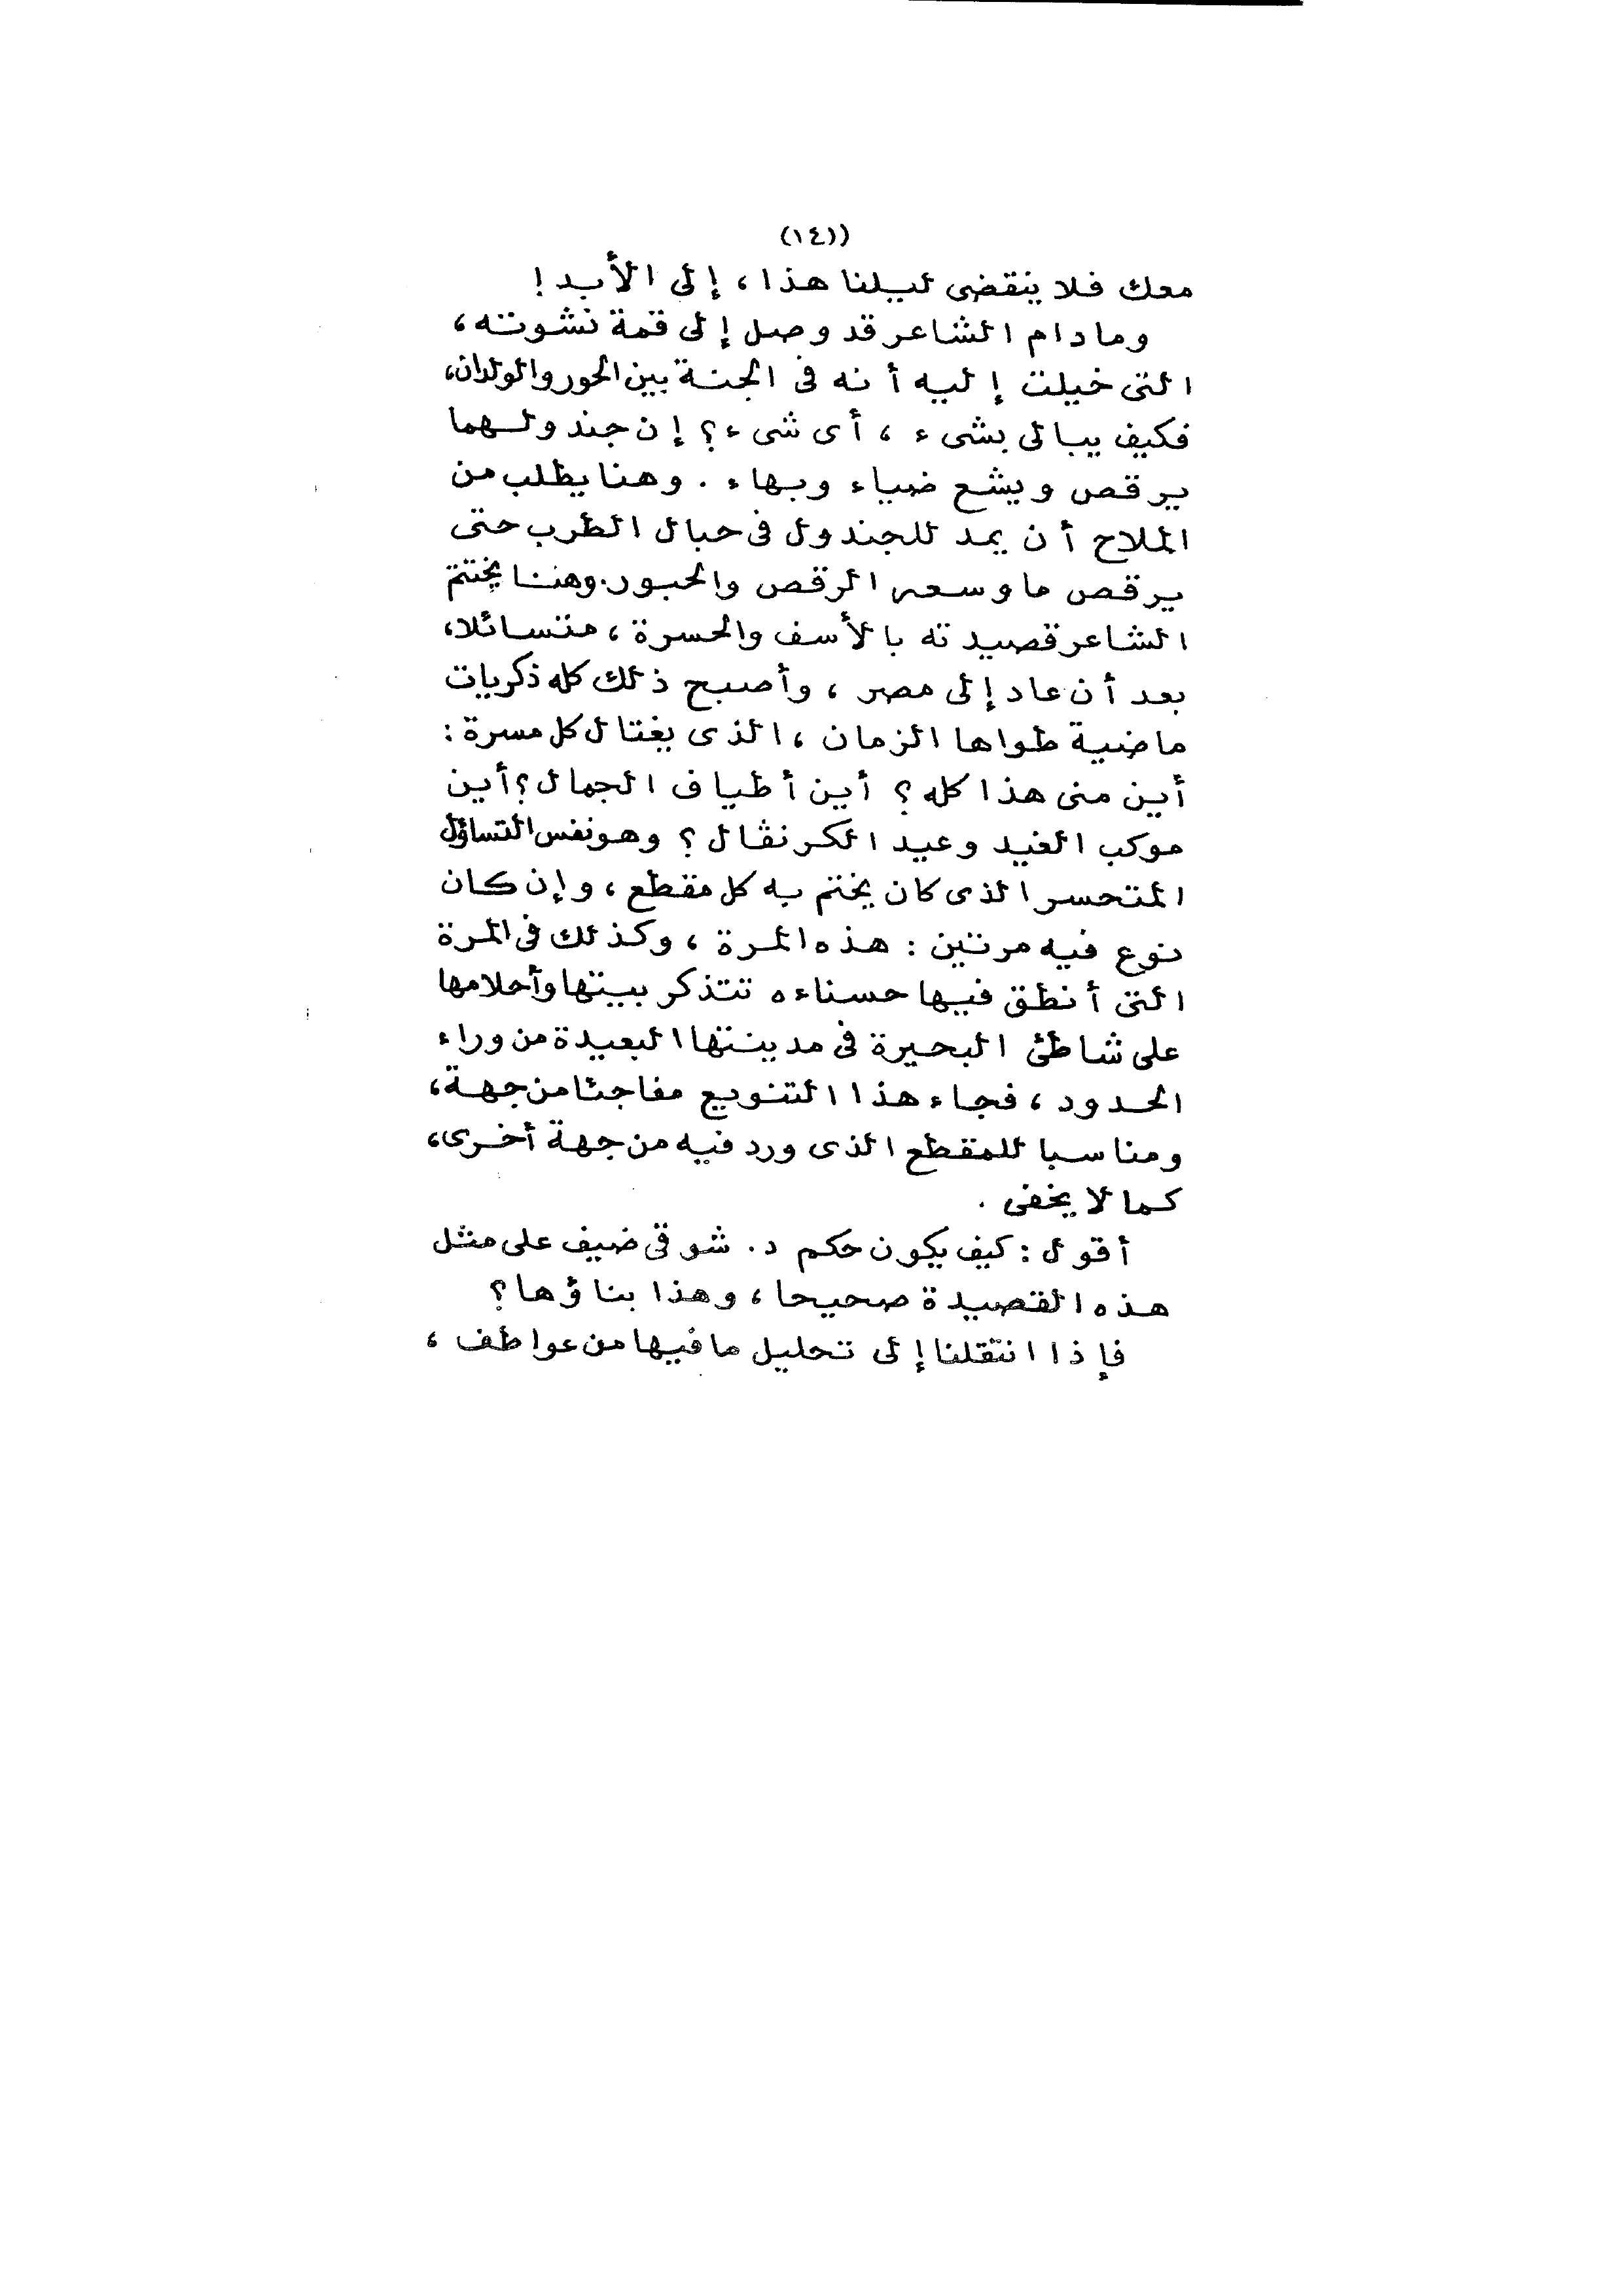 (١٤))
معك فلا ينقضى ليلنا هذا ، إلى الأبد !
وما دام الشاعر قد وصل إلى قمة نشوته ،
التى خيلت إليه أنه فى الجنة بين الحور والولدان،
فكيف يبالى بشىء ، أى شىء ؟ إن جندولهما
يرقص ويشع ضياء وبهاء . وهنا يطلب من
الملاح أن يمد للجندول فى حبال الطرب حتى
يرقص ما وسعه الرقص والحبور. وهنا يختتم
الشاعر قصيدته بالأسف والحسرة ، متسائلا،
بعد أن عاد إلى مصر ، وأصبح ذلك كله ذكريات
ماضية طواها الزمان ، الذى يغتال كل مسرة :
أين منى هذا كله ؟ أين أطياف الجمال ؟ أين
موكب الغيد وعيد الكرنڤال ؟ وهو نفس التساؤل
المتحسر الذى كان يختم به كل مقطع ، وإن كان
نوع فيه مرتين : هذه المرة ، وكذلك فى المرة
التى أنطق فيها حسناءه تتذكر بيتها وأحلامها
على شاطئ البحيرة فى مدينتها البعيدة من وراء
الحدود ، فجاء هذا التنويع مفاجئا من جهة،
ومناسبا للمقطع الذى ورد فيه من جهة أخرى،
كما لا يخفى .
أقول : كيف يكون حكم د. شوقى ضيف على مثل
هذه القصيدة صحيحا ، وهذا بناؤها ؟
فإذا انتقلنا إلى تحليل ما فيها من عواطف ،